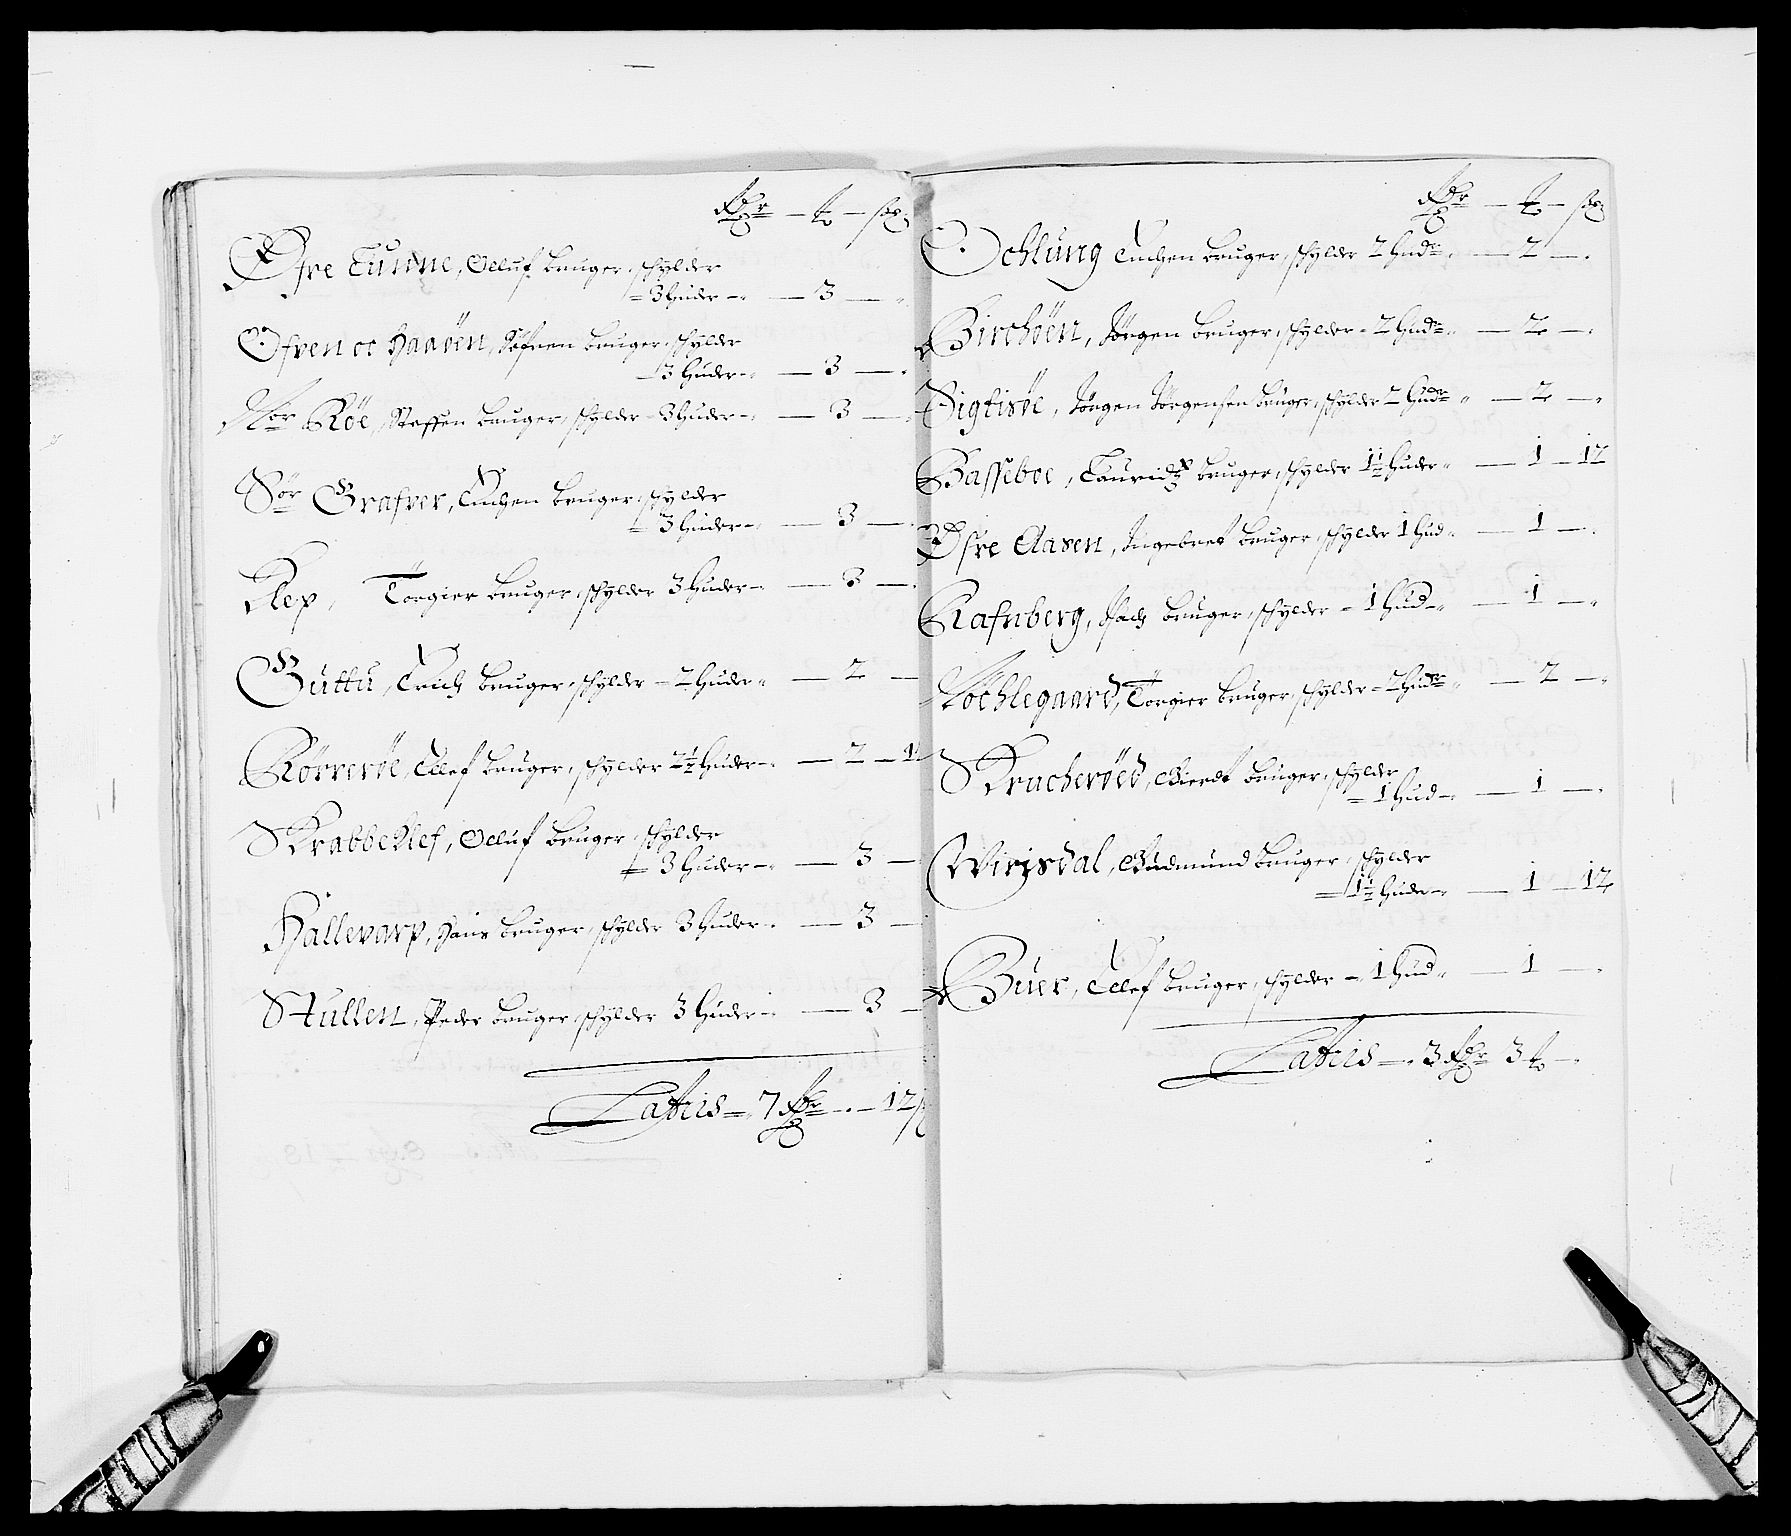 Rdr — ⅌ — sk
Øfre Tunne, Olluf bruger, schylder
3 Huder — 3 —
Ofven oc Haaøen, Søfren bruger, schylder
3 Huder — 3 —
Nor Røe, Steffen bruger, schylder 3 Huder — 3 —
Sør Grafver, Tuchen bruger, schylder
3 Huder — 3 —
Klep, Torgier bruger, schylder 3 Huder — 3 —
Guttu, Erich bruger, schylder 2 Huder — 2 —
Rørrerøe, Ellef bruger, schylder 2½ Huder — 2 — 1
Krabbeklef, Olluf bruger, schylder
3 Huder — 3 —
Hallevarp, Hans bruger, schylder 3 Huder — 3 —
Stullen, Peder bruger, schylder 3 Huder — 3 —
Lateris — 7 Rdr — 12 s
Rdr — ⅌ — sk
Ochlung Tuchen bruger, schylder 2 Hudr — 2 —
Birchøen, Jörgen bruger, schylder 2 Hudr — 2 —
Sigtisøe, Jörgen Jörgensen bruger, schylder 2 Hudr — 2 —
Basseboe, Lauridz bruger, schylder 1½ Huder — 1 — 12
Øfre Aasen, Ingebret bruger, schylder 1 Hud — 1 —
Rafnberg, Isach bruger, schylder 1 Hud — 1 —
Nøchlegaard, Torgier bruger, schylder 2 Hudr — 2 —
Krucherøed, Gierdt bruger, schylder
1 Hud — 1 —
Wirisdal, Gudmund bruger, schylder
1½ Huder — 1 — 12
Buer, Ellef bruger, schylder 1 Hud — 1 —
Lateris — 3 Rdr 3 ⅌ —